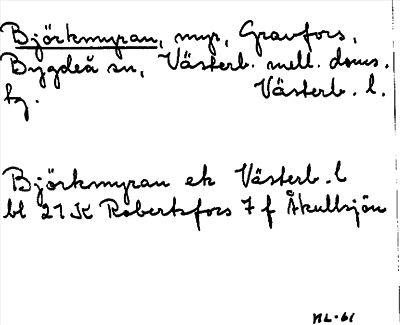 Björkmyran, myr, Granfors,
Bygdeå sn, Västerb. mell. doms.
tg. Västerb. l.
Björkmyran ek Västerb. l
bl 21 K Robertsfors 7 f Åkullsjön
ML-61